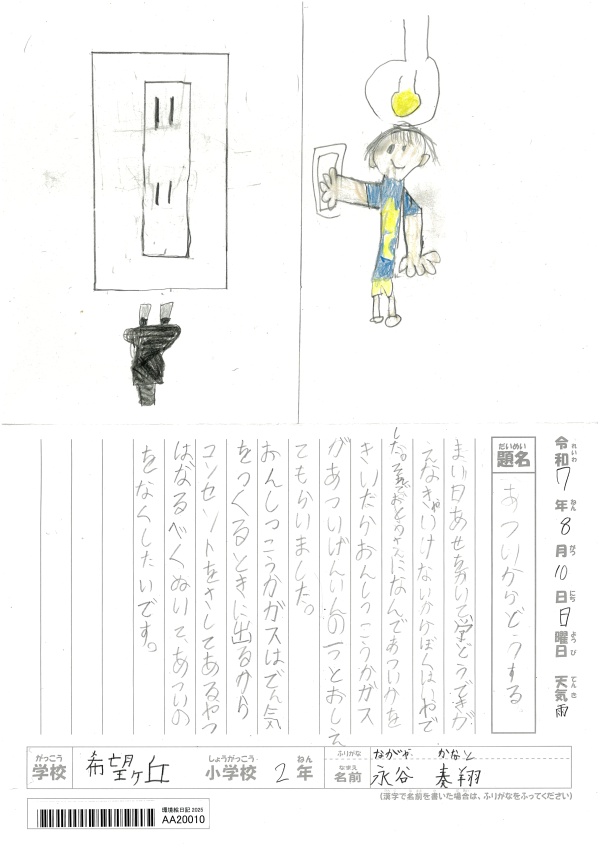 令和7年8月10日日曜日 天気雨
れいわ ねん がつ にち ようび てんき
だいめい
題名
あついからどうする
まい日あせをかいて学どうできが
えなきゃいけないからぼくはいやで
した。それでおとうさんになんであついかを
きいたらおんしつこうかガス
があついげんいんの一つとおしえ
てもらいました。
おんしつこうかガスはでん気
をつくるときに出るから
コンセントをさしてあるやつ
はなるべくぬいて、あついの
をなくしたいです。
がっこう
学校
希望ヶ丘
しょうがっこう
小学校
2
ねん
年
ふりがな
ながや かなと
なまえ
名前
永谷 奏翔
(漢字で名前を書いた場合は、ふりがなをふってください)
環境絵日記 2025
AA20010